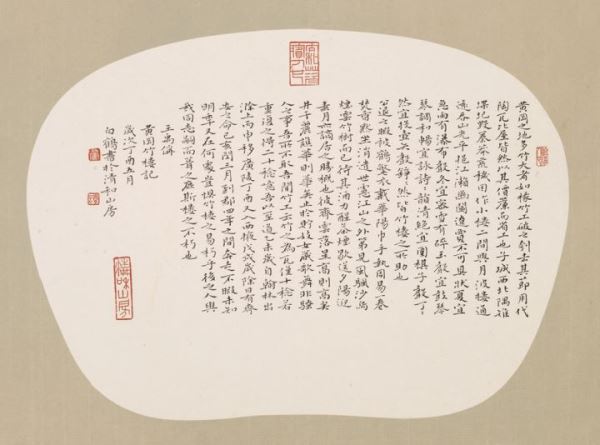 黄岡之地多竹大者如椽竹工破之刳去其節用代
陶瓦比屋皆然以其價廉而省工也子城西北隅雉
堞圮毀蓁莽荒穢因作小樓二間與月波樓通
遠吞山光平挹江瀨幽闃遼夐不可具狀夏宜
急雨有瀑布聲冬宜密雪有碎玉聲宜鼓琴
琴調和暢宜詠詩詩韻清絕宜圍棋子聲丁丁
然宜投壺矢聲錚錚然皆竹樓之所助也
公退之暇披鶴氅衣戴華陽巾手執周易一卷
焚香默坐消遣世慮江山之外第見風帆沙鳥
煙雲竹樹而已待其酒力醒茶煙歇送夕陽迎
素月亦謫居之勝概也彼齊雲落星高則高矣
井幹麗譙華則華矣止於貯妓女藏歌舞非騷
人之事吾所不取吾聞竹工云竹之為瓦僅十稔若
重復之得二十稔噫吾以至道乙未歲自翰林出
滁上丙申移廣陵丁酉又入西掖戊戌歲除日有齊
安之命己亥閏三月到郡四年之間奔走不暇未知
明年又在何處豈懼竹樓之易朽乎後之人與
我同志嗣而葺之庶斯樓之不朽也
王禹偁
黄岡竹樓記
歲次丁酉五月
白鶴書於清和山房